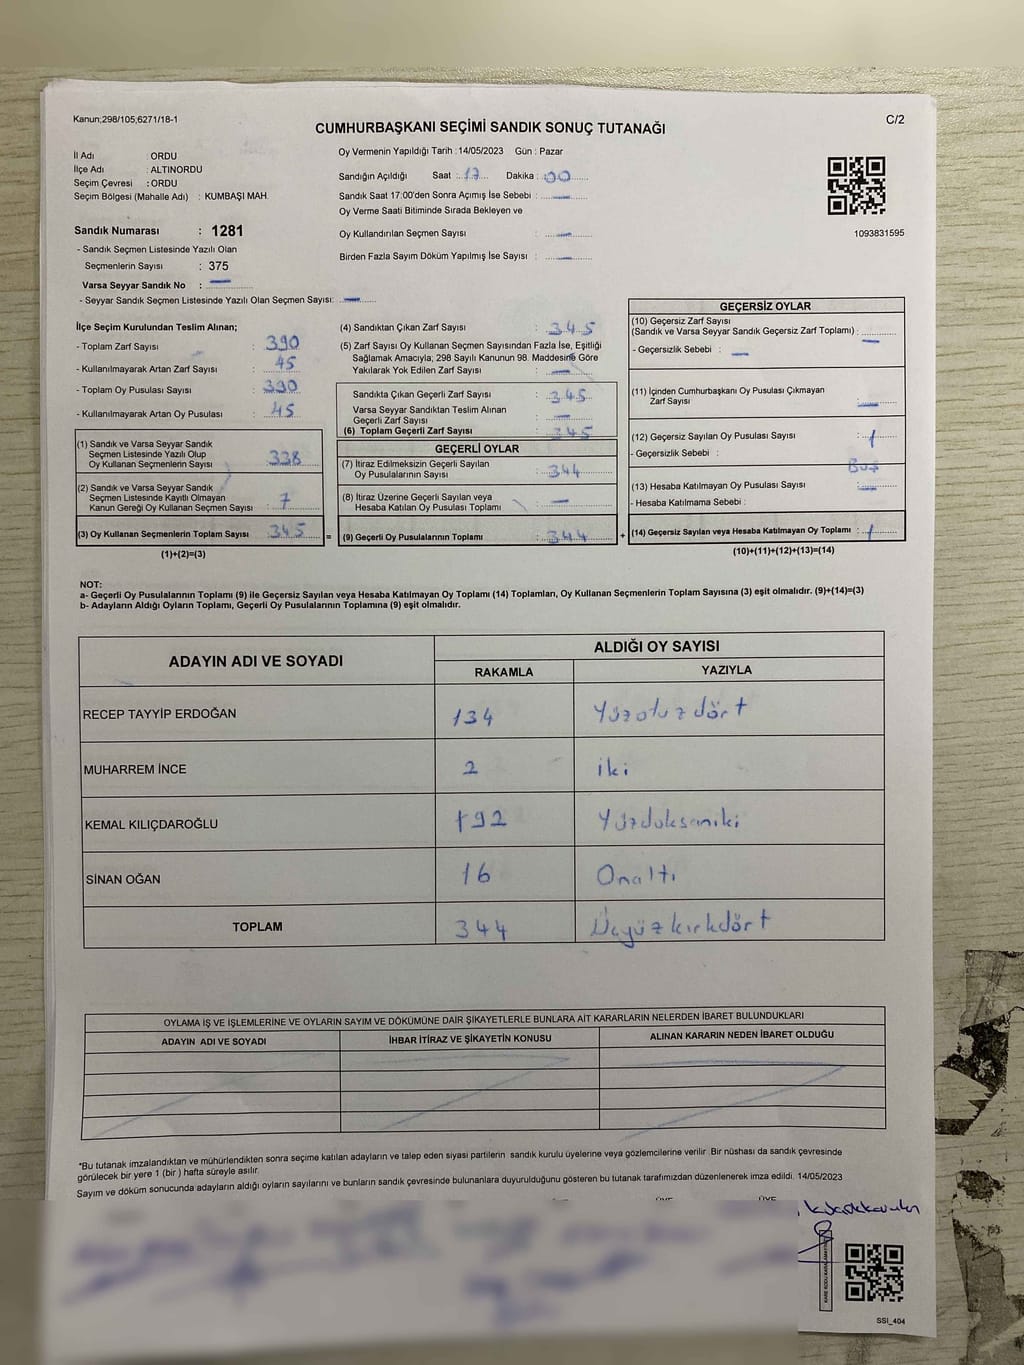 Kanun;298/105;6271/18-1
C/2
CUMHURBAŞKANI SEÇİMİ SANDIK SONUÇ TUTANAĞI
İl Adı : ORDU
İlçe Adı : ALTINORDU
Seçim Çevresi : ORDU
Seçim Bölgesi (Mahalle Adı) : KUMBAŞI MAH.
Sandık Numarası : 1281
- Sandık Seçmen Listesinde Yazılı Olan
Seçmenlerin Sayısı : 375
Varsa Seyyar Sandık No : —
- Seyyar Sandık Seçmen Listesinde Yazılı Olan Seçmen Sayısı: —
Oy Vermenin Yapıldığı Tarih : 14/05/2023 Gün : Pazar
Sandığın Açıldığı Saat : 17 Dakika : 00
Sandık Saat 17:00'den Sonra Açımış İse Sebebi : —
Oy Verme Saati Bitiminde Sırada Bekleyen ve
Oy Kullandırılan Seçmen Sayısı : —
Birden Fazla Sayım Döküm Yapılmış İse Sayısı : —
1093831595
İlçe Seçim Kurulundan Teslim Alınan;
- Toplam Zarf Sayısı : 390
- Kullanılmayarak Artan Zarf Sayısı : 45
- Toplam Oy Pusulası Sayısı : 390
- Kullanılmayarak Artan Oy Pusulası : 45
(1) Sandık ve Varsa Seyyar Sandık
Seçmen Listesinde Yazılı Olup
Oy Kullanan Seçmenlerin Sayısı : 338
(2) Sandık ve Varsa Seyyar Sandık
Seçmen Listesinde Kayıtlı Olmayan
Kanun Gereği Oy Kullanan Seçmen Sayısı : 7
(3) Oy Kullanan Seçmenlerin Toplam Sayısı : 345
(1)+(2)=(3)
(4) Sandıktan Çıkan Zarf Sayısı : 345
(5) Zarf Sayısı Oy Kullanan Seçmen Sayısından Fazla İse, Eşitliği
Sağlamak Amacıyla; 298 Sayılı Kanunun 98. Maddesine Göre
Yakılarak Yok Edilen Zarf Sayısı : —
Sandıkta Çıkan Geçerli Zarf Sayısı : 345
Varsa Seyyar Sandıktan Teslim Alınan
Geçerli Zarf Sayısı : —
(6) Toplam Geçerli Zarf Sayısı : 345
GEÇERLİ OYLAR
(7) İtiraz Edilmeksizin Geçerli Sayılan
Oy Pusulalarının Sayısı : 344
(8) İtiraz Üzerine Geçerli Sayılan veya
Hesaba Katılan Oy Pusulası Toplamı : —
= (9) Geçerli Oy Pusulalarının Toplamı : 344 +
GEÇERSİZ OYLAR
(10) Geçersiz Zarf Sayısı
(Sandık ve Varsa Seyyar Sandık Geçersiz Zarf Toplamı) : —
- Geçersizlik Sebebi : —
(11) İçinden Cumhurbaşkanı Oy Pusulası Çıkmayan
Zarf Sayısı : —
(12) Geçersiz Sayılan Oy Pusulası Sayısı : 1
- Geçersizlik Sebebi : Boş
(13) Hesaba Katılmayan Oy Pusulası Sayısı : —
- Hesaba Katılmama Sebebi :
(14) Geçersiz Sayılan veya Hesaba Katılmayan Oy Toplamı : 1
(10)+(11)+(12)+(13)=(14)
NOT:
a- Geçerli Oy Pusulalarının Toplamı (9) ile Geçersiz Sayılan veya Hesaba Katılmayan Oy Toplamı (14) Toplamları, Oy Kullanan Seçmenlerin Toplam Sayısına (3) eşit olmalıdır. (9)+(14)=(3)
b- Adayların Aldığı Oyların Toplamı, Geçerli Oy Pusulalarının Toplamına (9) eşit olmalıdır.
ADAYIN ADI VE SOYADI
ALDIĞI OY SAYISI
RAKAMLA YAZIYLA
RECEP TAYYİP ERDOĞAN 134 Yüzotuzdört
MUHARREM İNCE 2 iki
KEMAL KILIÇDAROĞLU 192 Yüzdoksaniki
SİNAN OĞAN 16 Onaltı
TOPLAM 344 Üçyüzkırkdört
OYLAMA İŞ VE İŞLEMLERİNE VE OYLARIN SAYIM VE DÖKÜMÜNE DAİR ŞİKAYETLERLE BUNLARA AİT KARARLARIN NELERDEN İBARET BULUNDUKLARI
ADAYIN ADI VE SOYADI İHBAR İTİRAZ VE ŞİKAYETİN KONUSU ALINAN KARARIN NEDEN İBARET OLDUĞU
*Bu tutanak imzalandıktan ve mühürlendikten sonra seçime katılan adayların ve talep eden siyasi partilerin sandık kurulu üyelerine veya gözlemcilerine verilir. Bir nüshası da sandık çevresinde
görülecek bir yere 1 (bir ) hafta süreyle asılır.
Sayım ve döküm sonucunda adayların aldığı oyların sayılarını ve bunların sandık çevresinde bulunanlara duyurulduğunu gösteren bu tutanak tarafımızdan düzenlenerek imza edildi. 14/05/2023
SSI_404